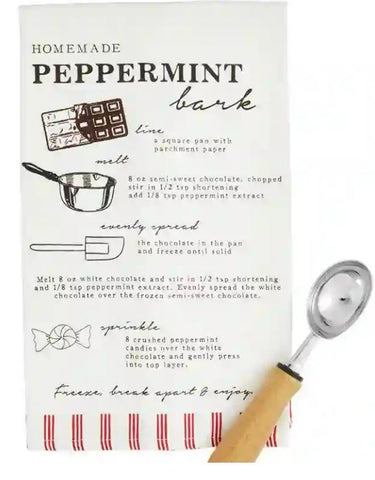 HOMEMADE
PEPPERMINT
bark
line
a square pan with
parchment paper
melt
8 oz semi-sweet chocolate, chopped
stir in 1/2 tsp shortening
add 1/8 tsp peppermint extract
evenly spread
the chocolate in the pan
and freeze until solid
Melt 8 oz white chocolate and stir in 1/2 tsp shortening
and 1/8 tsp peppermint extract. Evenly spread the white
chocolate over the frozen semi-sweet chocolate.
sprinkle
8 crushed peppermint
candies over the white
chocolate and gently press
into top layer.
Freeze, break apart & enjoy